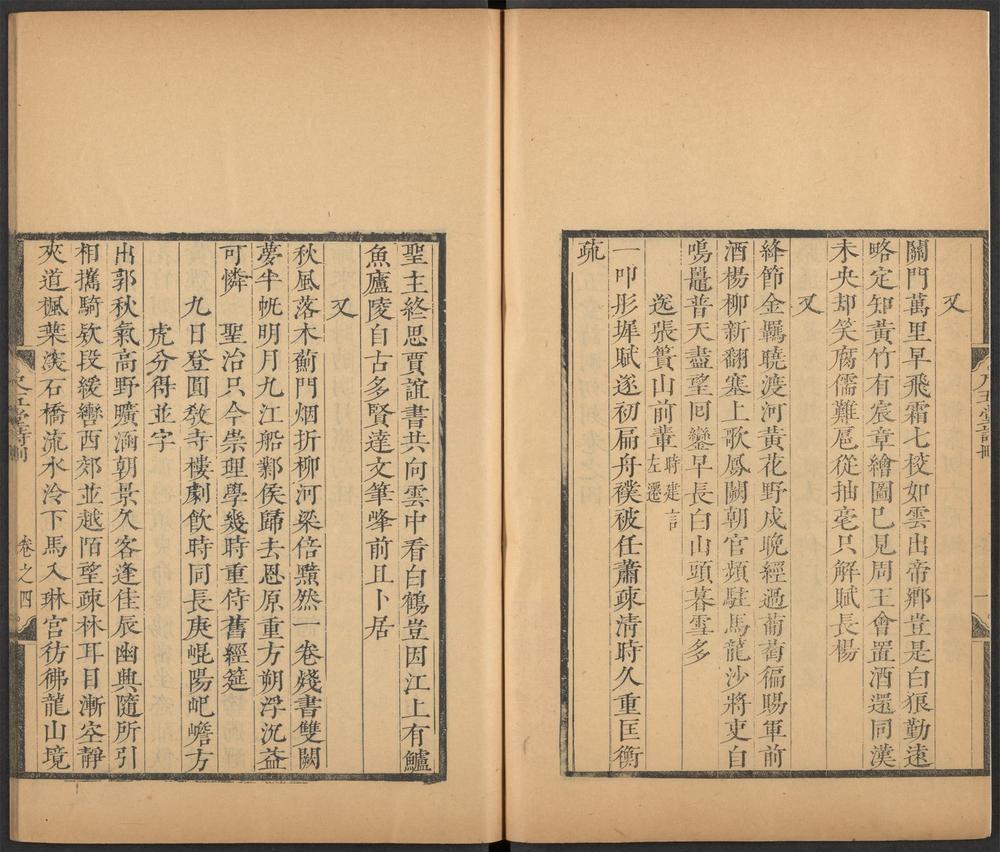 又
關門萬里早飛霜七校如雲出帝鄉豈是白狼勤遠
略定知黃竹有宸章繪圖已見周王會置酒還同漢
未央却笑腐儒難扈從抽毫只解賦長楊
又
絳節金羈曉渡河黃花野戍晚經過葡萄徧賜軍前
酒楊柳新翻塞上歌鳳闕朝官頻駐馬龍沙將吏自
鳴鼉普天盡望回鑾早長白山頭暮雪多
送張簣山前輩時建言左遷
一叩彤墀賦遂初扁舟襆被任蕭疎淸時久重匡衡
疏
聖主終思賈誼書共向雲中看白鶴豈因江上有鱸
魚廬陵自古多賢達文筆峰前且卜居
又
秋風落木薊門烟折柳河梁倍黯然一卷殘書雙闕
夢半帆明月九江船鄴侯歸去恩原重方朔浮沉益
可憐　聖治只今崇理學幾時重侍舊經筵
九日登圓敎寺樓劇飮時同長庚崐陽屺嶦方
虎分得並字
出郭秋氣高野曠涵朝景久客逢佳辰幽興隨所引
相攜騎欵段緩轡西郊並越陌望疎林耳目漸空靜
夾道楓葉深石橋流水泠下馬入琳宮彷彿龍山境
卷之四